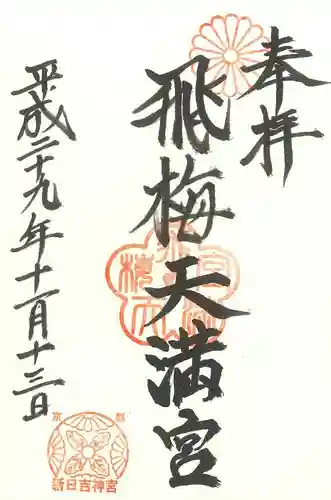 奉拝
飛梅天満宮
平成二十九年十一月十三日
京都
新日吉神宮